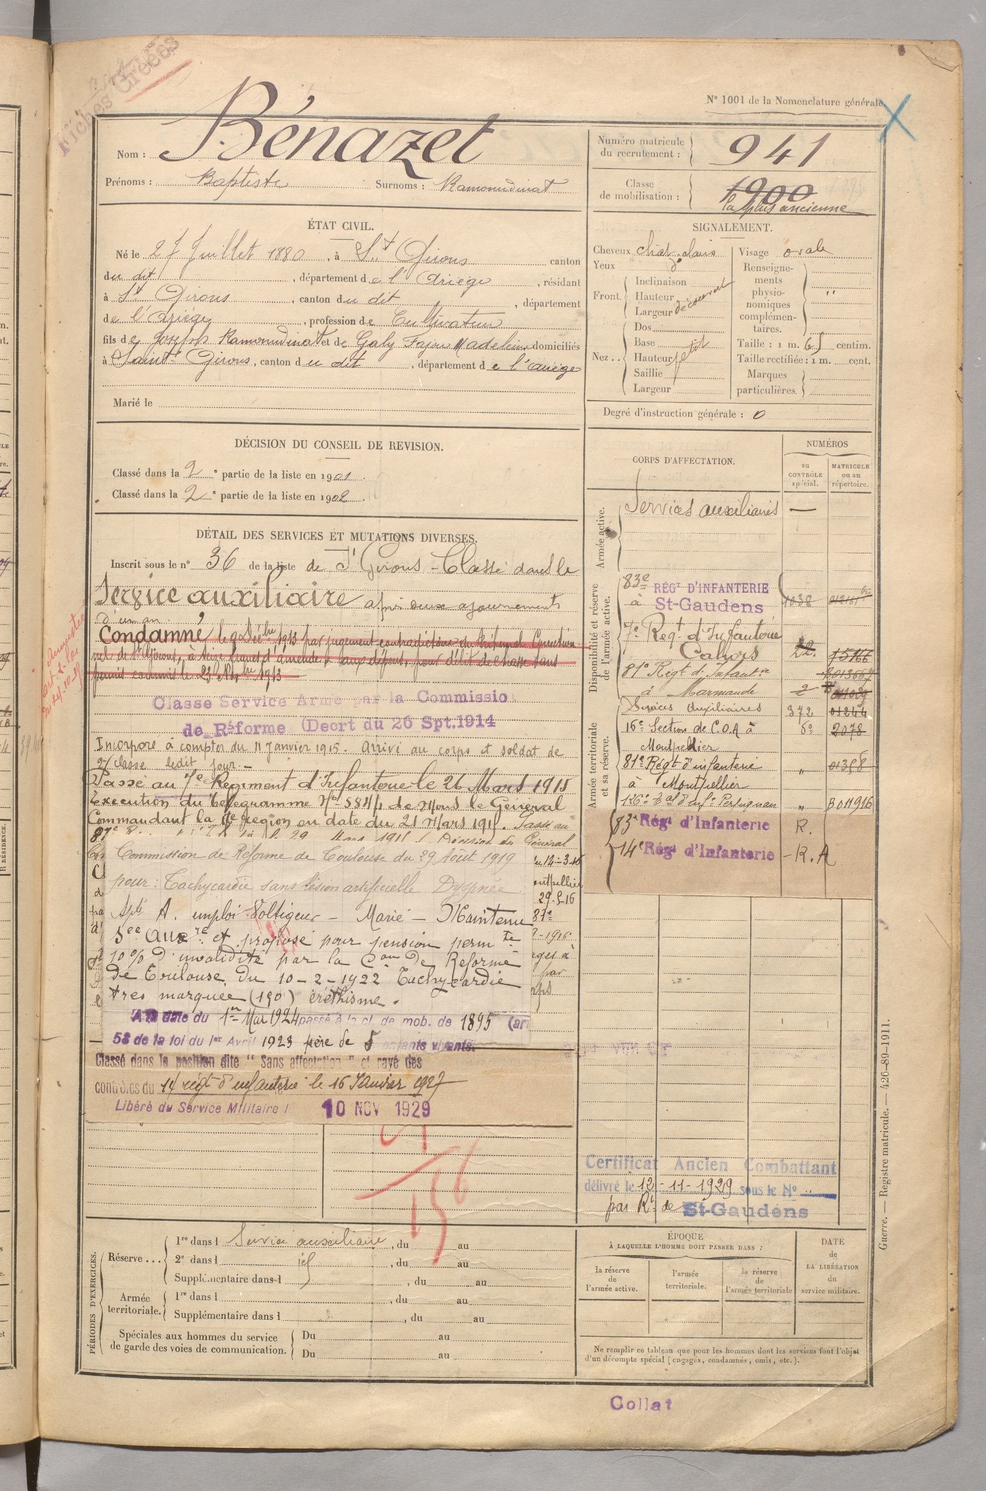 Fiches Créées
N° 1001 de la Nomenclature générale
Nom : Bénazet
Prénoms : Baptiste Surnoms : Ramonudinat
Numéro matricule du recrutement : 941
Classe de mobilisation : 1900
la plus ancienne
ÉTAT CIVIL.
Né le 27 Juillet 1880, à St Girons canton
du dit, département de l'Ariège, résidant
à St Girons, canton du dit, département
de l'Ariège, profession de Cultivateur
fils de Joseph Ramonudinat et de Galy Fajou Madeleine domiciliés
à Saint Girons, canton du dit, département de l'Ariège
Marié le
SIGNALEMENT.
Cheveux chat. clairs
Yeux do
Front Inclinaison
Hauteur
Largeur découvert
Nez Dos
Base
Hauteur petit
Saillie
Largeur
Visage ovale
Renseignements physionomiques complémentaires. "
Taille : 1 m. 65 centim.
Taille rectifiée : 1 m. cent.
Marques particulières.
Degré d'instruction générale : 0
DÉCISION DU CONSEIL DE REVISION.
Classé dans la 2e partie de la liste en 1901
Classé dans la 2e partie de la liste en 1902
DÉTAIL DES SERVICES ET MUTATIONS DIVERSES.
Inscrit sous le n° 36 de la liste de St Girons - Classé dans le
Service auxiliaire après deux ajournements
d'un an.
Condamné le 9 Décbre 1913 par jugement contradictoire du tribunal Correction
nel de St Girons, à seize francs d'amende & aux dépens, pour délit de chasse sans
permis commis le 23 Nbre 1913
Classé Service Armé par la Commission
de Réforme (Decrt du 26 Spt.1914
Incorporé à compter du 11 Janvier 1915. Arrivé au corps et soldat de
2e classe ledit jour.
Passé au 7e Régiment d'Infanterie le 26 Mars 1915
Execution du télégramme No 584/1 de Mons le Général
Commandant la région en date du 21 Mars 1915. Passé au
Commission de Réforme de Toulouse du 29 Août 1919
pour : Tachycardie sans lésion artificielle Dyspnée
apte A. emploi Voltigeur - Marié - Maintenu
See Auxre et proposé pour pension permte
10% d'invalidité par la Con De Reforme
de Toulouse du 10-2-1922 Tachycardie
tres marquée (190) éréthisme.
A la date du 1er Mai 1924 passé à la cl. de mob. de 1895 (art
58 de la loi du 1er Avril 1923 père de 5 enfants vivants.
Classé dans la position dite "Sans affectation" et rayé des
contrôles du 14 régt d'infanterie le 16 Janvier 1927
Libéré du Service Militaire l 10 NOV 1929
CORPS D'AFFECTATION.
NUMÉROS
au contrôle spécial.
matricule ou au répertoire.
Armée active.
Services auxiliaires —
Disponibilité et réserve de l'armée active.
83e RÉGt D'INFANTERIE
à St-Gaudens 1038
7e Régt d'Infanterie
Cahors 22. 15166
81e Régt d'Infantrie
à Marmande 2
Armée territoriale et sa réserve.
Services Auxiliaires 372 01244
16e Section de C.O.A à do 2078
Montpellier
81e Régt d'infanterie " 01398
à Montpellier
136e Bat d'Infie Perpignan " B 011916
83e Régt d'Infanterie R.
14e Régt d'Infanterie - R.A
Certificat Ancien Combattant
délivré le 12-11-1929 sous le N°
par Rt de St-Gaudens
PÉRIODES D'EXERCICES.
Réserve ...
1re dans l Service auxiliaire, du au
2e dans l id, du au
Supplémentaire dans l, du au
Armée territoriale.
1re dans l, du au
Supplémentaire dans l, du au
Spéciales aux hommes du service de garde des voies de communication.
Du au
Du au
ÉPOQUE
À LAQUELLE L'HOMME DOIT PASSER DANS :
la réserve de l'armée active.
l'armée territoriale.
la réserve de l'armée territoriale
DATE de LA LIBÉRATION du service militaire.
Ne remplir ce tableau que pour les hommes dont les services font l'objet
d'un décompte spécial (engagés, condamnés, omis, etc.).
Guerre. — Registre matricule. — 426-89-1911.
Collat